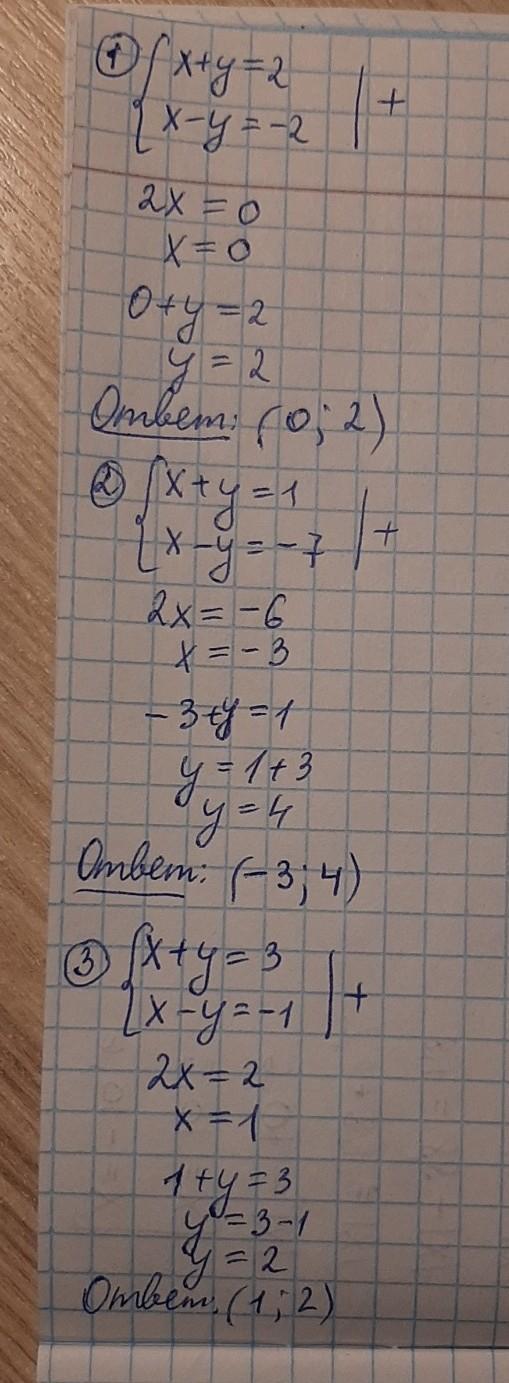 ① { x+y=2 | +
x-y=-2
2x=0
x=0
0+y=2
y=2
Ответ: (0; 2)
② { x+y=1 | +
x-y=-7
2x=-6
x=-3
-3+y=1
y=1+3
y=4
Ответ: (-3; 4)
③ { x+y=3 | +
x-y=-1
2x=2
x=1
1+y=3
y=3-1
y=2
Ответ. (1; 2)